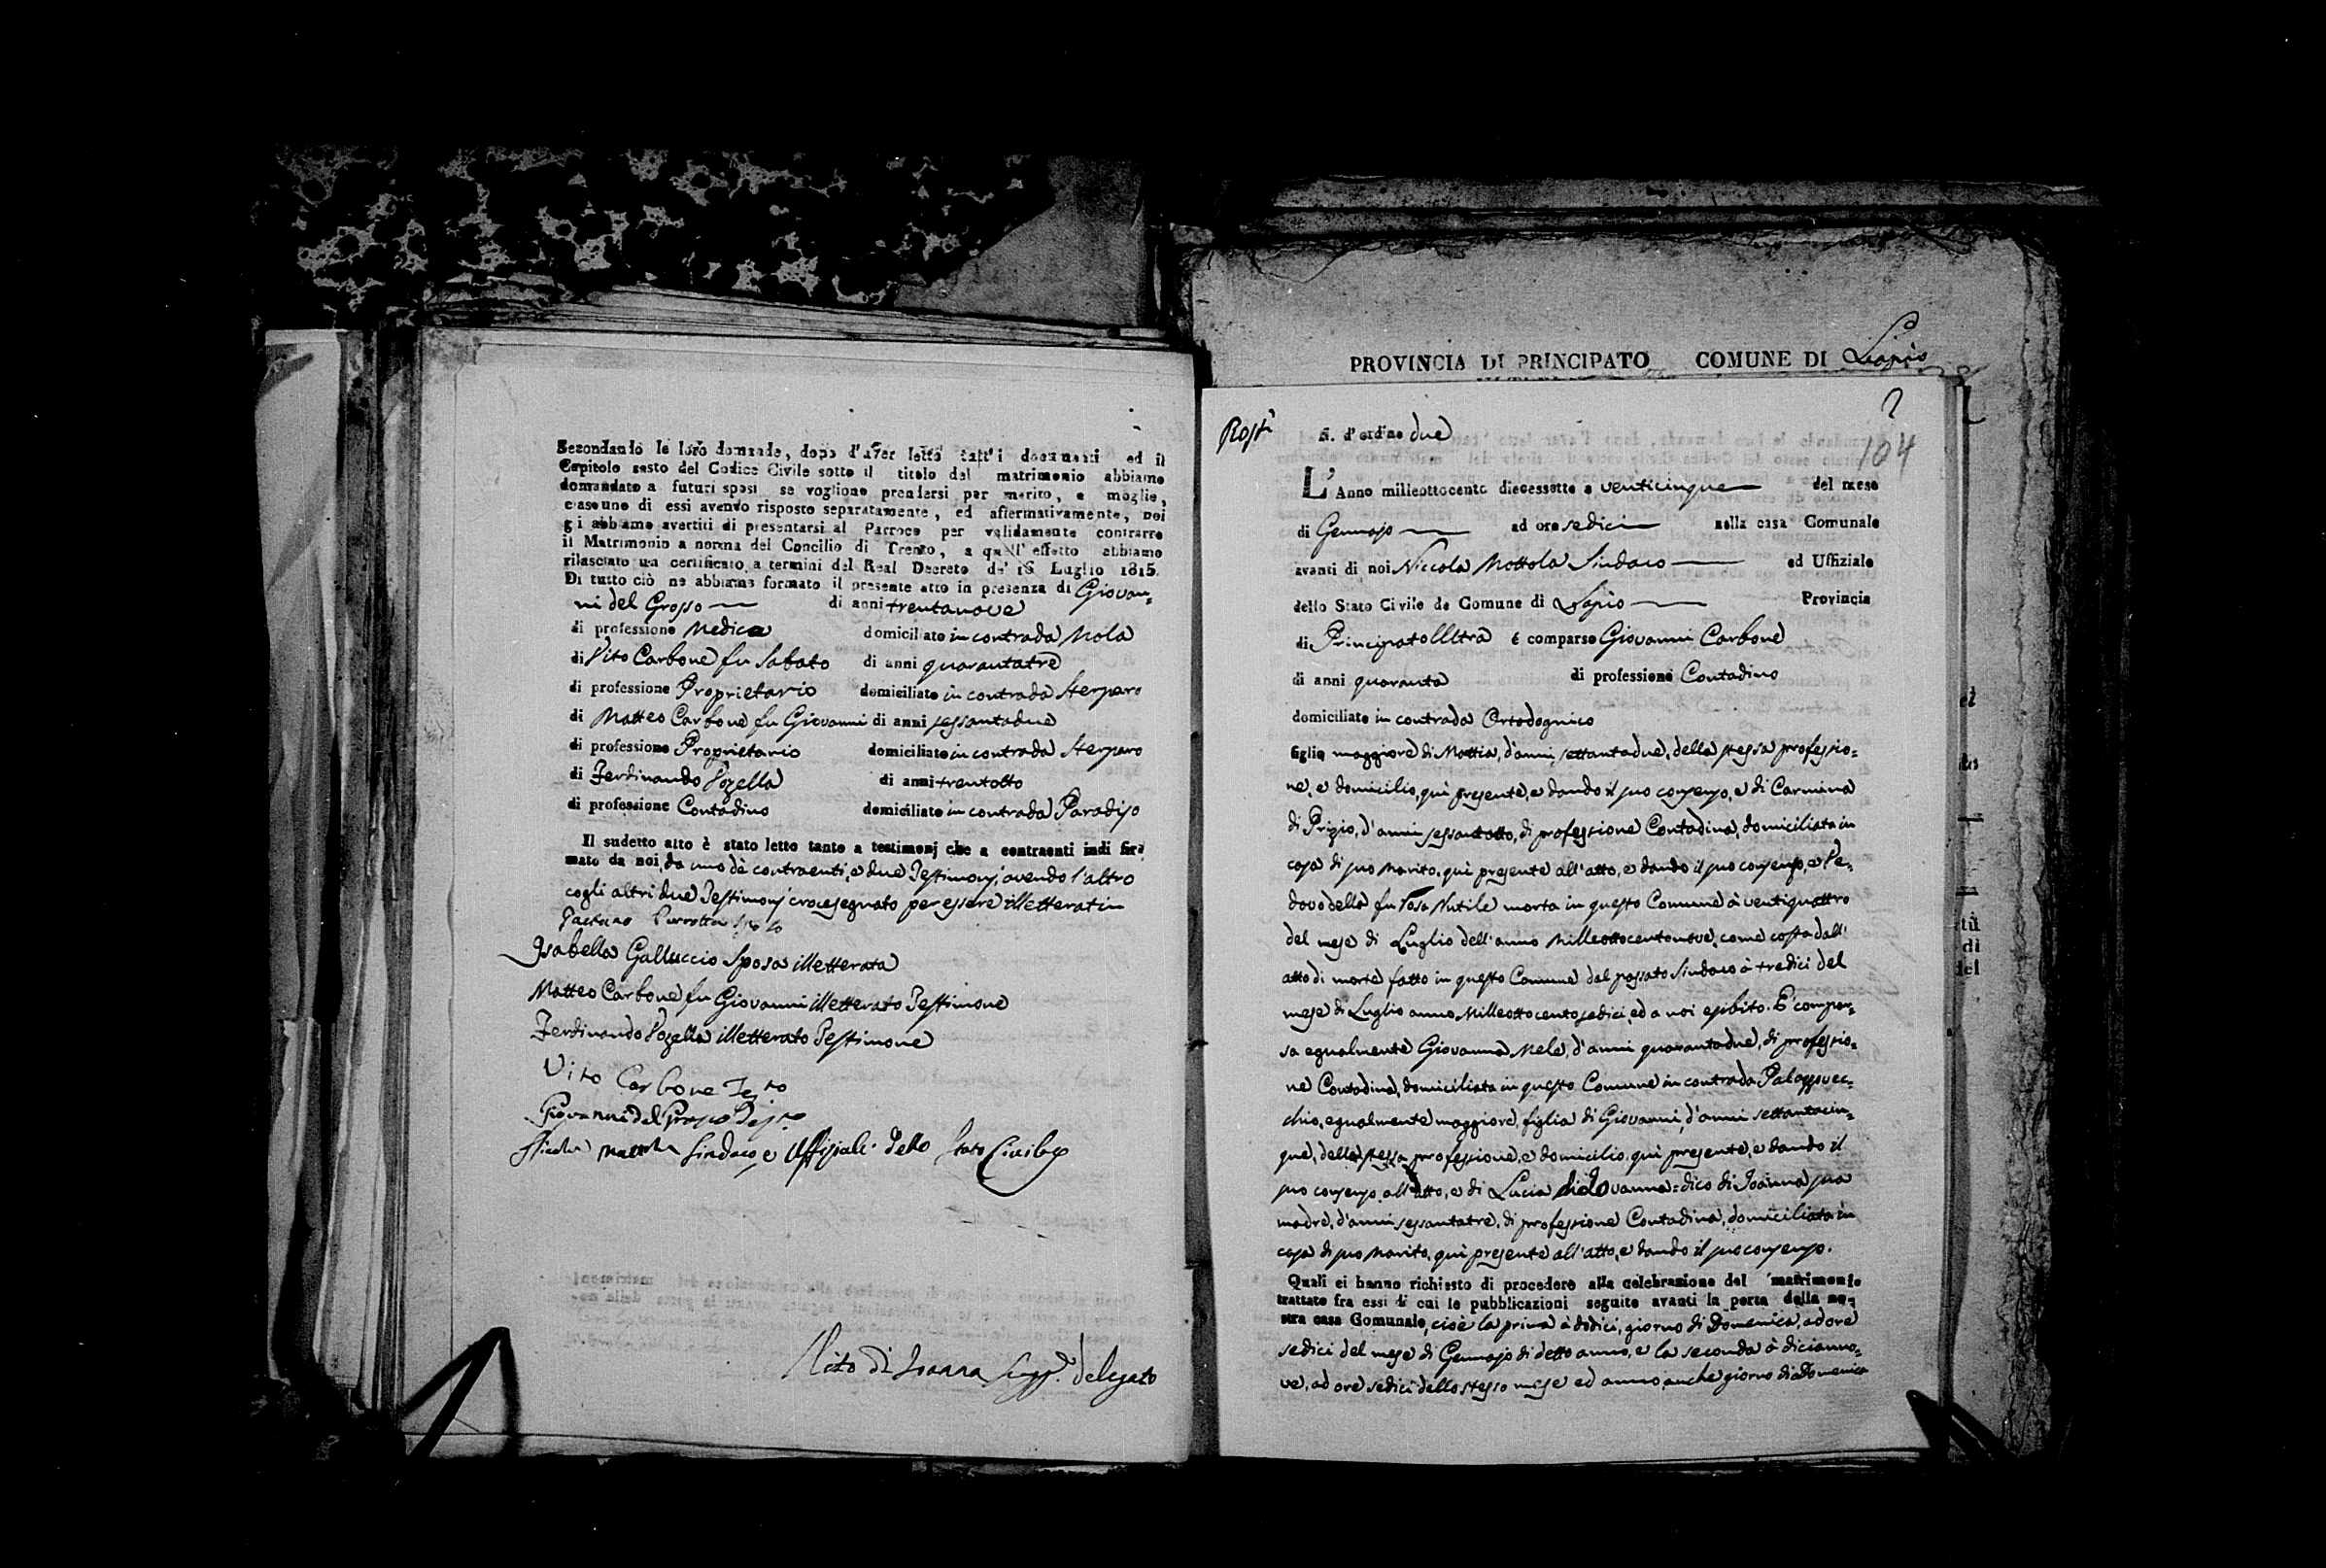 Secondando le loro domande, dopo d'aver letto tutt'i documenti ed il
Capitolo sesto del Codice Civile sotto il titolo del matrimonio abbiamo
domandato a futuri sposi se vogliono prendersi per marito, e moglie,
ciascuno di essi avendo risposto separatamente, ed affermativamente, noi
gi abbiamo avertiti di presentarsi al Parroco per validamente contrarre
il Matrimonio a norma del Concilio di Trento, a quell' effetto abbiamo
rilasciato un certificato a termini del Real Decreto de' 16 Luglio 1815.
Di tutto ciò ne abbiamo formato il presente atto in presenza di Giovan=
ni del Grosso di anni trentanove
di professione Medico domiciliato in contrada Mola
di Vito Carbone fu Sabato di anni quarantatre
di professione Proprietario domiciliato in contrada Sterparo
di Matteo Carbone fu Giovanni di anni sessantadue
di professione Proprietario domiciliato in contrada Sterparo
di Ferdinando Vozella di anni trentotto
di professione Contadino domiciliato in contrada Paradiso
Il sudetto atto è stato letto tanto a testimonj che a contraenti indi fir=
mato da noi, da uno dè contraenti, e due Testimonj, avendo l'altro
cogli altri due Testimonj crocesegnato per essere illetterati
Isabella Galluccio Sposa illetterata
Matteo Carbone fu Giovanni illetterato Testimone
Ferdinando Vozella illetterato Testimone
Vito Carbone Testo
Giovanni del Grosso Testo
Sindaco e Uffiziale dello Stato Civile
Vito di Joanna Supp. delegato
PROVINCIA DI PRINCIPATO COMUNE DI Lapio
2
104
N. d'ordine due
L'Anno milleottocento diecessette a venticinque del mese
di Gennajo ad ore sedici nella casa Comunale
avanti di noi Niccola Mottola Sindaco ed Uffiziale
dello Stato Civile de Comune di Lapio Provincia
di Principato Ultra é comparso Giovanni Carbone
di anni quaranta di professione Contadino
domiciliato in contrada Ortodognico
figlio maggiore di Mattia, d'anni settantadue, della stessa professio=
ne, e domicilio, quì presente, e dando il suo consenso, e di Carmina
di Prizio, d'anni sessantotto, di professione Contadina, domiciliata in
casa di suo Marito, quì presente all'atto, e dando il suo consenso, e Ve=
dovo della fu Rosa Nutile morta in questo Comune à ventiquattro
del mese di Luglio dell'anno Milleottocentonove, come costa dall'
atto di morte fatto in questo Comune dal passato Sindaco à tredici del
mese di Luglio anno Milleottocentosedici, ed a noi esibito. È compar=
sa egualmente Giovanna Mele, d'anni quarantadue, di professio=
ne Contadina, domiciliata in questo Comune in contrada Palazzovec=
chio, egualmente maggiore, figlia di Giovanni, d'anni settantacin=
que, della stessa professione, e domicilio, quì presente, e dando il
suo consenso all'atto, e di Lucia di Jovanna= dico di Joanna sua
madre, d'anni sessantatre, di professione Contadina, domiciliata in
casa di suo Marito, quì presente all'atto, e dando il suo consenso.
Quali ci hanno richiesto di procedere alla celebrazione del matrimonio
trattato fra essi di cui le pubblicazioni seguite avanti la porta della no=
stra casa Comunale, cioè la prima à dodici, giorno di Domenica, ad ore
sedici del mese di Gennajo di detto anno, e la seconda à dicianno=
ve, ad ore sedici dello stesso mese ed anno, anche giorno di Domenica